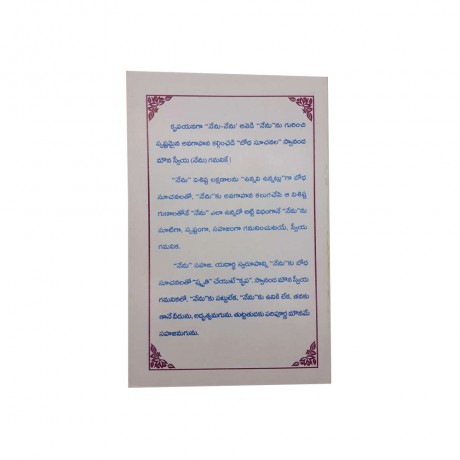 కృపయనగా "నేను-నేను' అనెడి "నేను"ను గురించి
స్పష్టమైన అవగాహన కల్గించెడి "బోధ సూచనల" స్వానంద
మౌన స్వీయ (నేను) గమనికే!
"నేను" విశిష్ట లక్షణాలను "ఉన్నవి ఉన్నట్లు"గా బోధ
సూచనలతో, "నేను"కు అవగాహన కలుగచేసి ఆ విశిష్ట
గుణాలతోనే "నేను" ఎలా ఉన్నదో అట్టి విధంగానే "నేను"ను
సూటిగా, స్పష్టంగా, సహజంగా గమనించుటయే, స్వీయ
గమనిక.
"నేను" సహజ, యదార్థ స్వరూపాన్ని "నేను"కు బోధ
సూచనలతో "స్మృతి" చేయుటే "కృప". స్వానంద మౌన స్వీయ
గమనికలో, "నేను"కు పట్టులేక, "నేను"కు ఉనికి లేక, తనకు
తానే వీడును, అదృశ్యమగును. తుట్టతుదకు పరిపూర్ణ మౌనమే
సహజమగును.